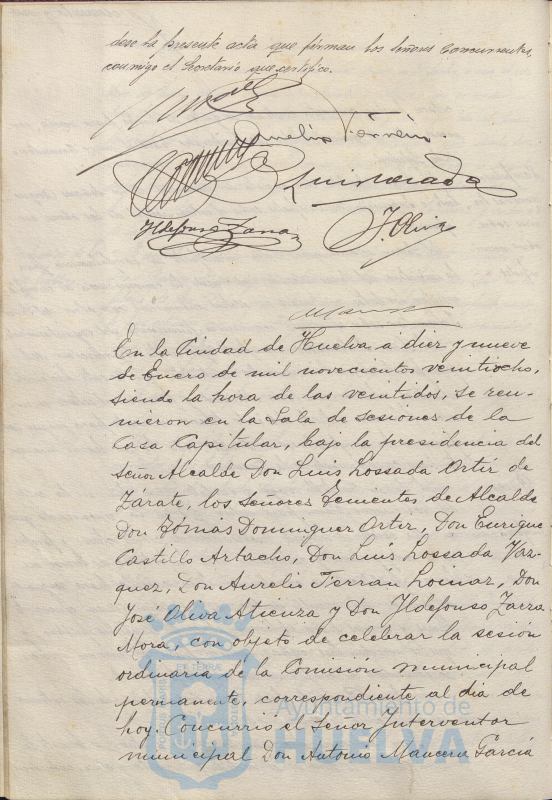 dose la presente acta que firman los señores concurrentes,
conmigo el Secretario que certifico.
Aurelio Terrán
Ildefonso Zarra
J. Oliva
En la Ciudad de Huelva á diez y nueve
de Enero de mil novecientos veintiocho,
siendo la hora de las veintidós, se reu-
nieron en la Sala de sesiones de la
Casa Capitular, bajo la presidencia del
Señor Alcalde Don Luis Lossada Ortiz de
Zárate, los señores Tenientes de Alcalde
Don Tomás Dominguez Ortiz, Don Enrique
Castillo Artacho, Don Luis Lossada Vaz-
quez, Don Aurelio Terrán Loinaz, Don
José Oliva Atienza y Don Ildefonso Zarra
Mora, con objeto de celebrar la sesión
ordinaria de la Comisión municipal
permanente, correspondiente al dia de
hoy. Concurrió el Señor Interventor
municipal Don Antonio Mancera Garcia
Ayuntamiento de
HUELVA